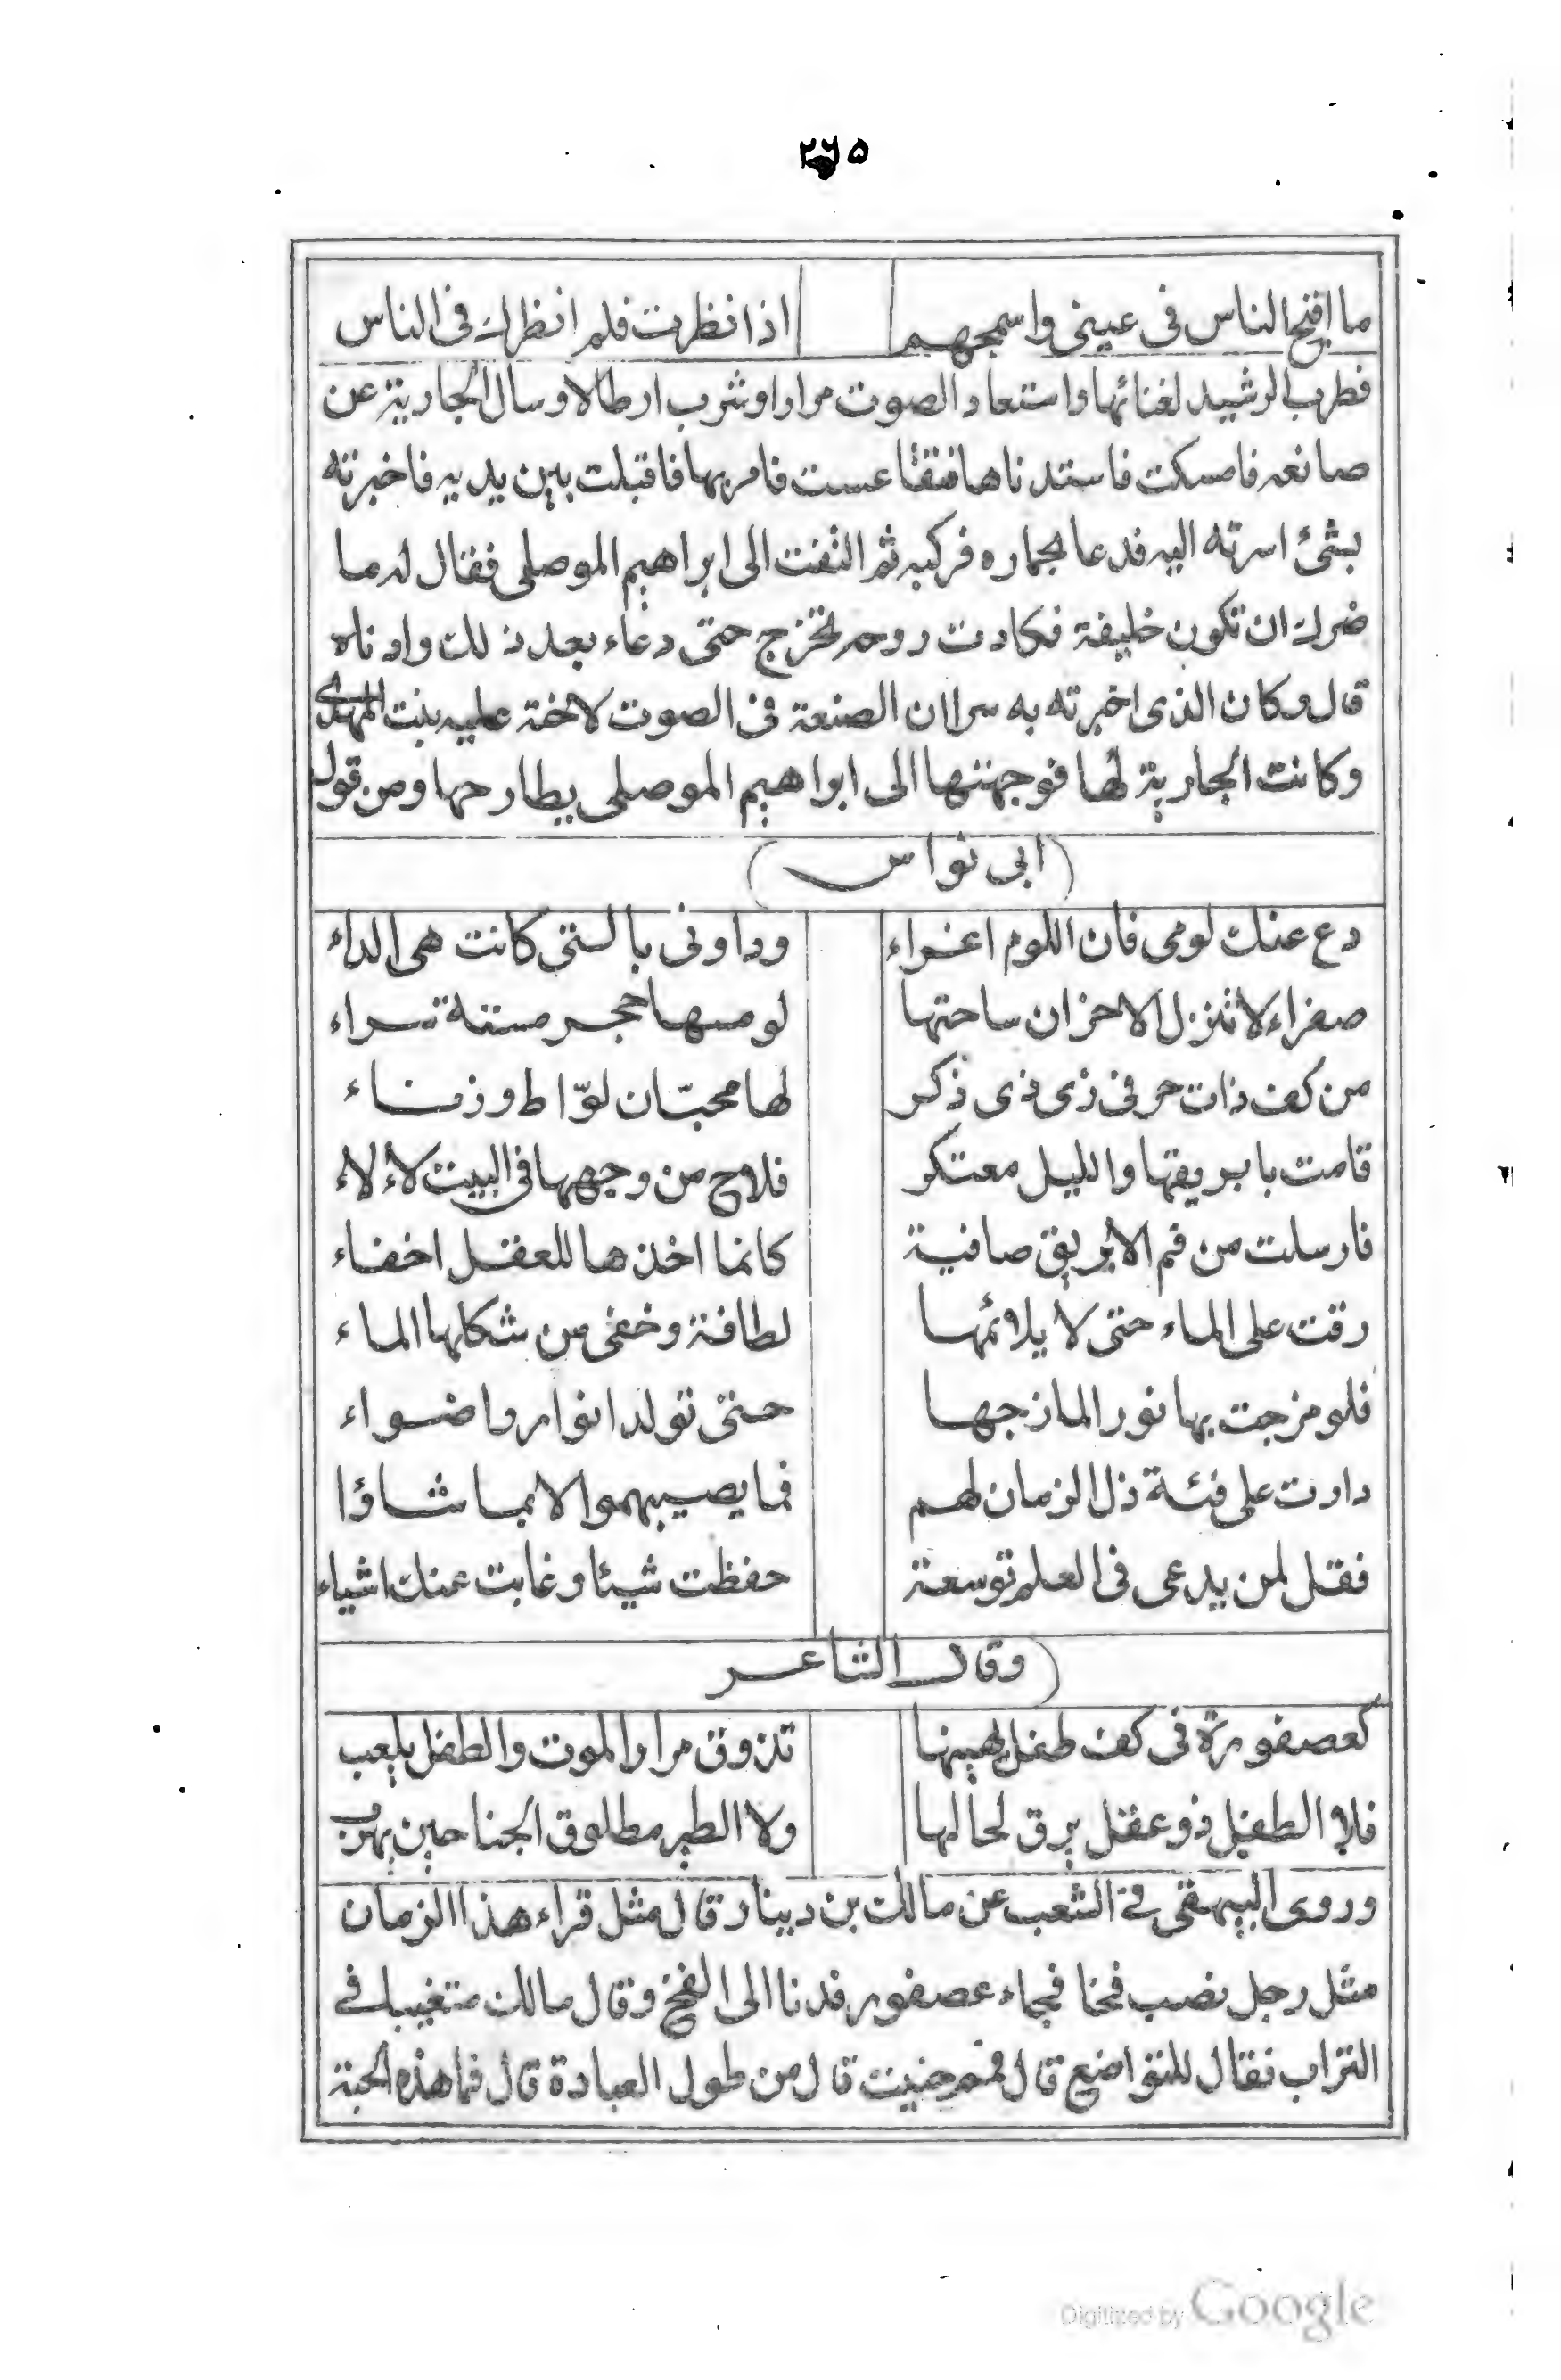 ٢٦٥
ما اقبح الناس فى عينى واسمجهم اذا نظرت فلم انظرك فى الناس
فطرب الرشيد لغنائها واستعاد الصوت مرارا وشرب ارطالا وسال الجارية عن
صانعه فامسكت فاستدناها فتقاعست فامر بها فاقبلت بين يديه فاخبرته
بشئ اسرته اليه فدعا بحماره فركبه ثم التفت الى ابراهيم الموصلى فقال له ما
ضرك ان تكون خليفة فكادت روحه تخرج حتى دعاه بعد ذلك وادناه
قال وكان الذى اخبرته به سرا ان الصنعة فى الصوت لاخته عليه بنت المهدى
وكانت الجارية لها فوجهتها الى ابراهيم الموصلى يطارحها ومن قول
(ابى نواس)
دع عنك لومى فان اللوم اغراء وداونى بالستى كانت هى الداء
صفراء لا تنزل الاحزان ساحتها لو مسها حجر مسته سراء
من كف ذات حر فى زى ذى ذكر لها محبّان لوّاط وزناء
قامت بابريقها والليل معتكر فلاح من وجهها فى البيت لاء لاء
فارسلت من فم الابريق صافية كانما اخذها للعقل اخفاء
رقت على الماء حتى لا يلائمها لطافة وخفى من شكلها الماء
فلو مزجت بها نور المازجها حتى تولد انوار واضواء
دارت على فئة ذل الزمان لهم فما يصيبهموا الا بما شاؤا
فقل لمن يدعى فى العلم توسعة حفظت شيئا وغابت عنك اشياء
(وقال الشاعر
كعصفورة فى كف طفل يهينها تذوق مرار الموت والطفل يلعب
فلا الطفل ذو عقل يرق لحالها ولا الطير مطلوق الجناحين يهرب
وروى البيهقى فى الشعب عن مالك بن دينار قال مثل قراء هذا الزمان
مثل رجل نصب فخا فجاء عصفور فدنا الى الفخ وقال مالك متغيبا فى
التراب فقال للتواضع قال فمم حنيت قال من طول العبادة قال فما هذه الحبة
Digitized by Google